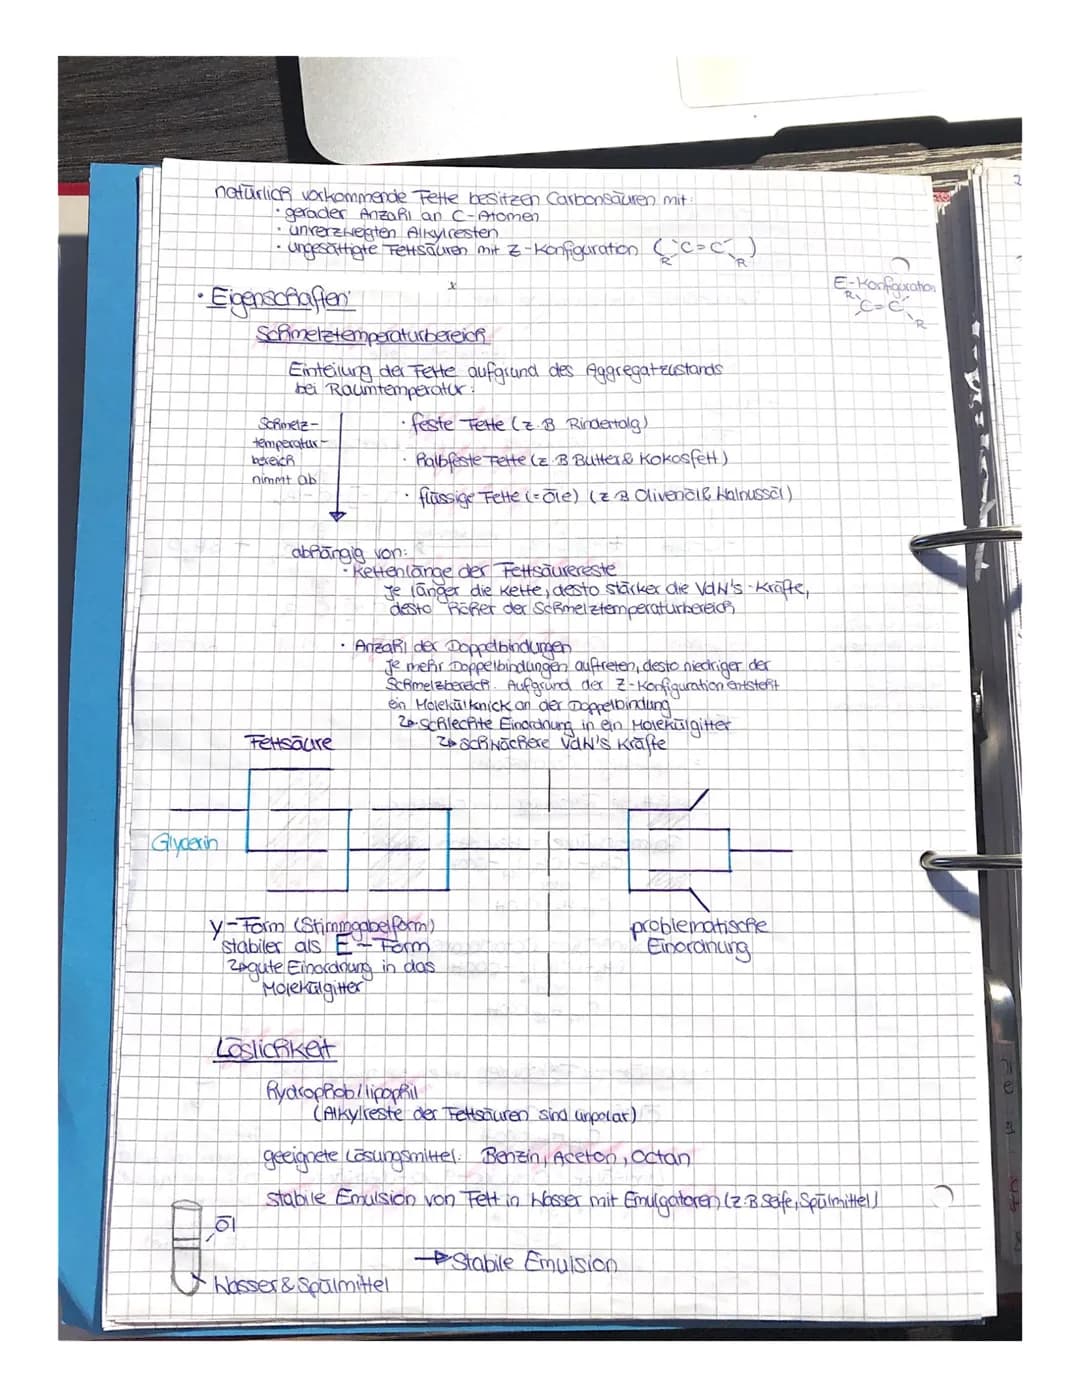 natürlich vorkommende Fette besitzen Carbonsäuren mit:
· gerader Anzahl an C-Atomen
· unverzweigten Alkylresten
· ungesättigte Fettsäuren mit Z-Konfiguration ( C=C )
R R
E-Konfiguration
R C=C R
· Eigenschaften:
x
Schmelztemperaturbereich
Einteilung der Fette aufgrund des Aggregatzustands
bei Raumtemperatur:
Schmelz-
temperatur-
bereich
nimmt ab
· feste Fette (z.B Rindertalg)
· halbfeste Fette (z.B Butter & Kokosfett)
· flüssige Fette (=Öle) (z.B Olivenöl & Walnussöl)
abhängig von:
· Kettenlänge der Fettsäurereste
Je länger die Kette, desto stärker die VdW's-Kräfte,
desto höher der Schmelztemperaturbereich
· Anzahl der Doppelbindungen
Je mehr Doppelbindungen auftreten, desto niedriger der
Schmelzbereich. Aufgrund der Z-Konfiguration entsteht
ein Molekülknick an der Doppelbindung
↳ schlechte Einordnung in ein Molekülgitter
↳ schwächere VdW's Kräfte
Fettsäure
Glycerin
y-Form (Stimmgabelform)
stabiler als E-Form
↳ gute Einordnung in das
Molekülgitter
problematische
Einordnung
Löslichkeit
hydrophob/lipophil
(Alkylreste der Fettsäuren sind unpolar)
geeignete Lösungsmittel: Benzin, Aceton, Octan
stabile Emulsion von Fett in Wasser mit Emulgatoren (z.B Seife, Spülmittel)
Öl
→ Stabile Emulsion
Wasser & Spülmittel